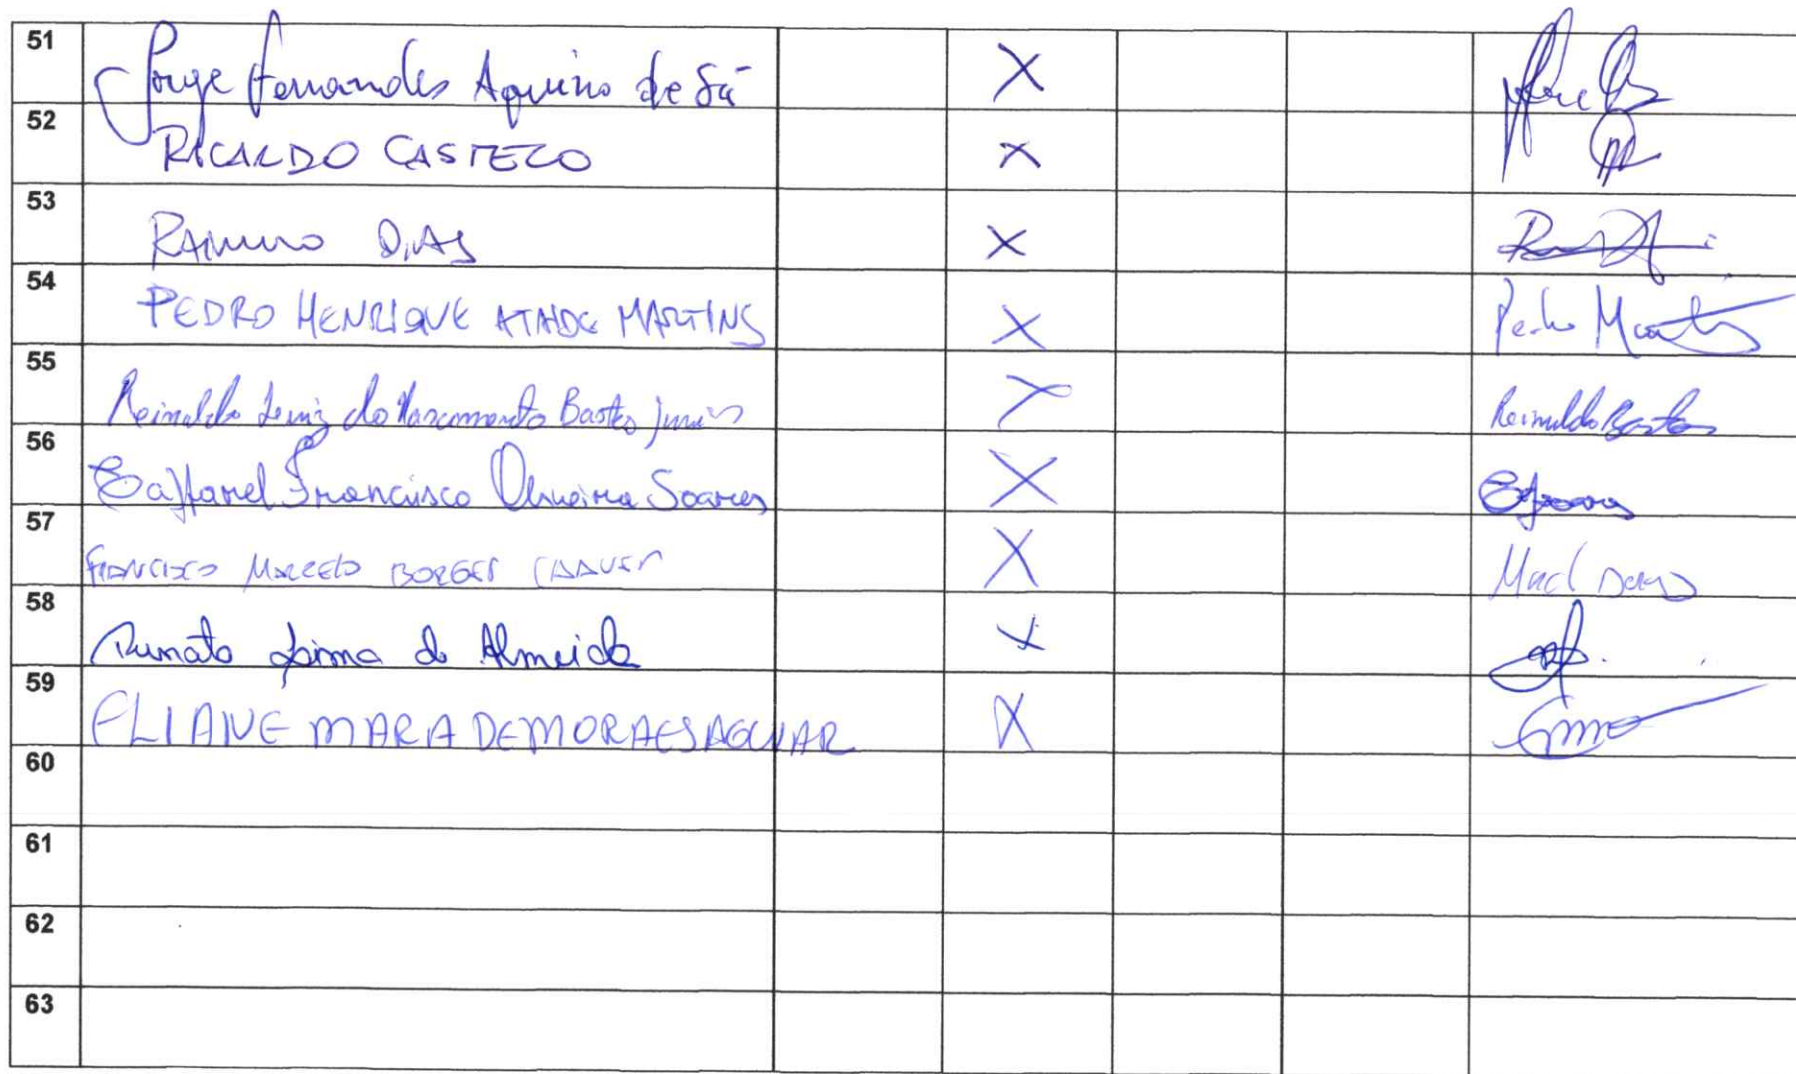 51 Jorge Fernandes Aquino de Sá X
52 RICARDO CASTELO X
53 RAMIRO DIAS X
54 PEDRO HENRIQUE ATAIDE MARTINS X Pedro Martins
55 Reinaldo Luiz do Nascimento Bastos Junior X Reinaldo Bastos
56 Francisco Oliveira Soares X
57 FRANCISCO MARCELO BORGES CHAVES X
58 Renato Lima de Almeida X
59 ELIANE MARIA DE MORAES AGUIAR X
60
61
62
63